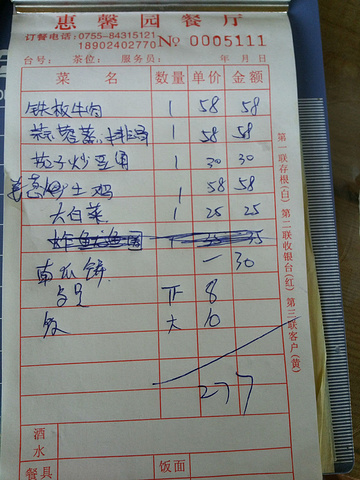 惠馨园餐厅
订餐电话:0755-84315121
18902402770 № 0005111
台号: 茶位: 服务员: 年 月 日
菜 名 数量 单价 金额
铁板牛肉 1 58 58
蒜蓉蒸 1 58 58
茄子炒豆角 1 30 30
土鸡 1 58 58
大白菜 1 25 25
南瓜饼 一 30
正 8
饭 大 10
277
酒水
餐具 饭面
第一联存根(白) 第二联收银台(红) 第三联客户(黄)